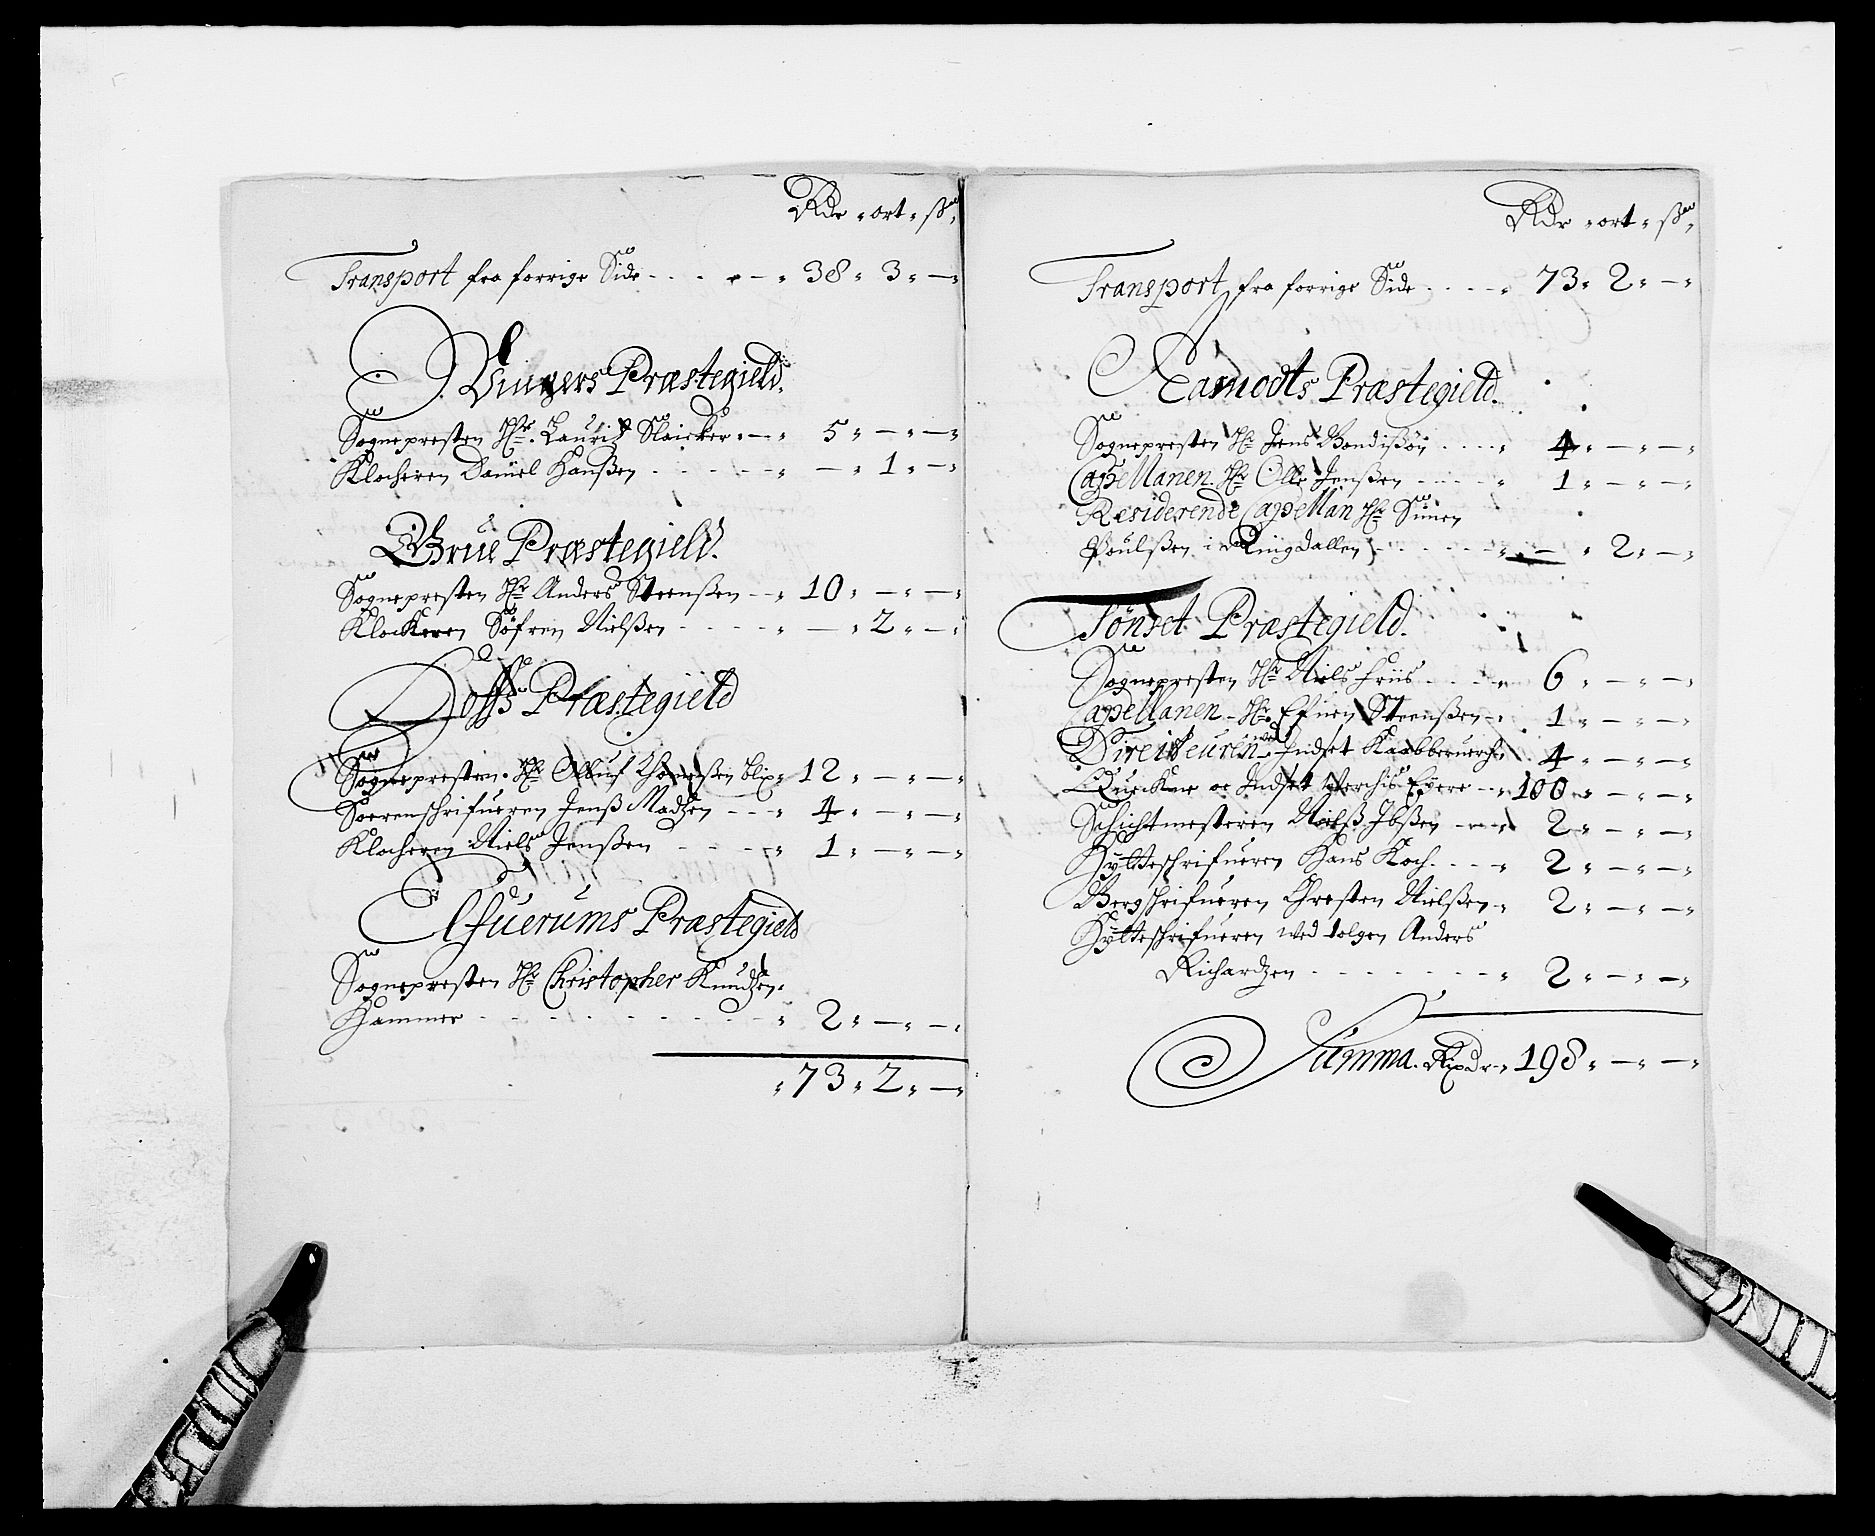 Rdr ort ß
Transport fra forrige Side 38 3 —
Vingers Præstegield.
Sognepresten Hr. Lauritz Slaicker 5 — —
Klocheren Daniel Hanßen — 1 —
Grue Præstegield.
Sognepresten Hr Anders Steenßen 10 — —
Klockeren Søfren Nielßen — 2 —
Hoffs Præstegield
Sognepresten Hr Olluf Thomeßen Blix 12 — —
Sorenschrifueren Jenß Madzen 4 — —
Klocheren Niels Jenßen 1 — —
Elfuerums Præstegield
Sognepresten Hr Christopher Knudzen
Hammer 2 — —
73 2 —
Rdr ort ß
Transport fra forrige Side 73 2 —
Aamodts Præstegield.
Sognepresten Hr Jens Bendißøn 4 — —
Capellanen Hr Olle Jenßen 1 — —
Residerende Capellan Hr Suuen
Poulßen i Ringdallen — 2 —
Tönset Præstegield.
Sognepresten Hr Niels Friis 6 — —
Capellanen Hr. Efuen Steenßen 1 — —
Directeuren ved Indset Kaabberuerch 4 — —
Quickne oc Indset Werchis Eyere 100 — —
Schichtmesteren Nielß Ibßen 2 — —
Hytteschrifueren Hans Koch 2 — —
Bergschrifueren Christen Nielßen 2 — —
Hytteschrifueren wed tolgen Anders
Richardzen 2 — —
Summa. Rixdr 198 — —